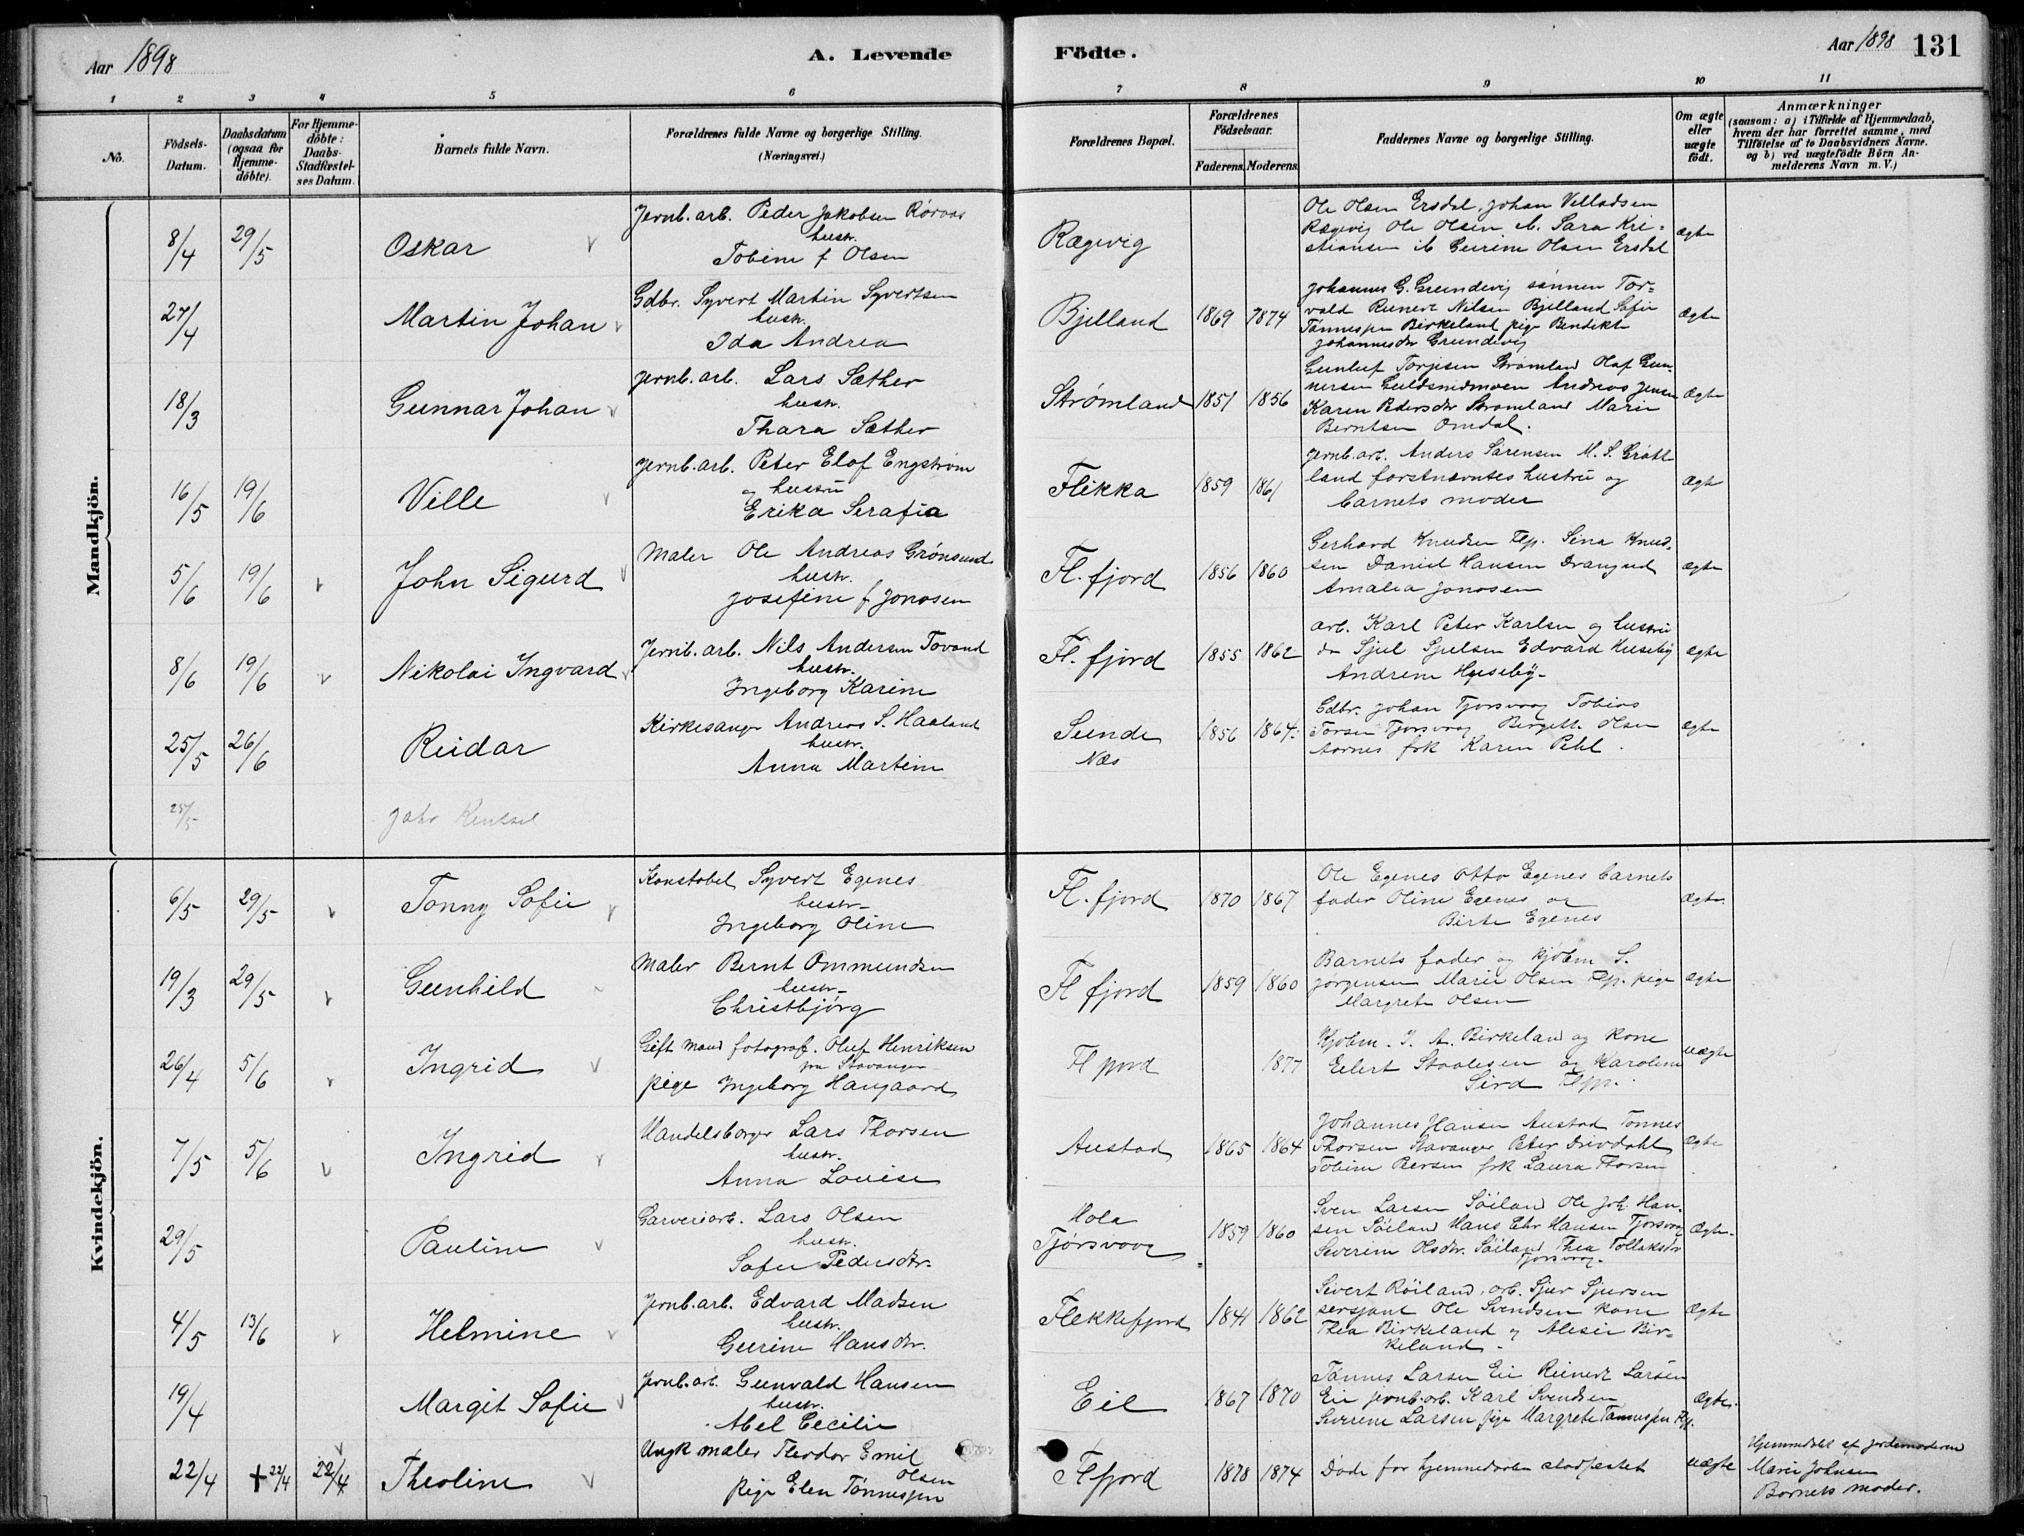 Aar 1898
A. Levende
Födte.
Aar 1898
131
1 2 3 4 5 6 7 8 9 10 11
No.
Födsels-
Datum.
Daabsdatum
(ogsaa for
Hjemme-
döbte).
For Hjemme-
döbte:
Daabs-
Stadfæstel-
ses Datum.
Barnets fulde Navn.
Forældrenes fulde Navne og borgerlige Stilling.
(Næringsvei.)
Forældrenes Bopæl.
Forældrenes
Födselsaar.
Faderens. Moderens.
Faddernes Navne og borgerlige Stilling.
Om ægte
eller
uægte
födt.
Anmærkninger
(saasom: a) i Tilfælde af Hjemmedaab,
hvem der har forrettet samme, med
Tilföielse af to Daabsvidners Navne.
og b) ved uægtefödte Börn An-
melderens Navn m. V.)
Mandkjön.
8/4 29/5 Oskar
Jernb. arb. Peder Jakobsen
hustr.
Tobine f Olsen
Rægevig
Ole Olsen Ersdal, Johan Velladsen
Rægevig Ole Olsen Sara Kri-
stiansen Gurine Olsen Ersdal
ægte
27/4 Martin Johan
Gdbr. Syvert Martin Syvertsen
hustr.
Ida Andrea
Bjelland 1869 1874
Johannes G. Grundevig sønnen Tor-
vald Reinert Nilsen Bjelland Sofie
Tønnesen Birkeland pige Bendikte
Johannesdtr Grundevig
ægte
18/3 Gunnar Johan
Jernb. arb. Lars Sæther
hustr.
Thara Sæther
Strømland 1851 1856
Gunluf Torjesen Strømland Olaf Gun-
nersen Guldsmedmoen Andreas Jensen
Karen Pedersdtr Strømland Marie
Berntsen Omdal.
ægte
16/5 19/6 Ville
Jernb. arb. Peter Elof Engstrøm
og hustru
Erika Serafia
Flikka 1859 1861
Jernb. arb. Anders Sørensen M. S. Grøtt-
land forstnævntes hustru og
barnets moder
ægte
5/6 19/6 John Sigurd
Maler Ole Andreas Grönsund
hustr.
Josefine f Jonasen
Fl. fjord 1856 1860
Gerhard Knudsen Flp. Sina Knud-
sen Daniel Hansen Drangsed
Amalia Jonasen
ægte
8/6 19/6 Nikolai Ingvard
Jernb. arb. Nils Andersen Tovand
hustr.
Ingeborg Karine
Fl. fjord 1855 1862
arb. Karl Peter Karlsen og hustru
Edvard Huseby
Andrine Huseby.
ægte
25/5 26/6 Reidar
Kirkesanger Andreas S. Haaland
hustr.
Anna Martine
Sunde
Næs
1856 1864
Gdbr. Johan Tjorsvaag Tobias
Torsen Tjorsvaag Bergitte Olsen
Aarnes frk Karen Pehl.
ægte
25/5
Kvindekjön.
6/5 29/5 Tonny Sofie
Konstabel Syvert Egenes
hustr.
Ingeborg Oline
Fl. fjord 1870 1867
Ole Egenes Otto Egenes barnets
fader Oline Egenes og
Birte Egenes
ægte
19/3 29/5 Gunhild
Maler Bernt Ommundsen
hustr.
Christbjörg
Fl fjord 1859 1860
Barnets fader og Kjøbm S.
Jørgensen Marie Olsen Flp. pige
Margrete Olsen
ægte
26/4 5/6 Ingrid
Gift mand fotograf. Oluf Henriksen
fra Stavanger
pige Ingeborg Haugaard
Fl fjord 1877
Kjøbm. I. A. Birkeland og kone
Eilert Staalesen og Karoline
Sird Flp.
uægte
7/5 5/6 Ingrid
Handelsborger Lars Thorsen
hustr.
Anna Louise
Austad 1865 1864
Johannes Hansen Austad Tønnes
Thorsen Stavanger Peter Drivdahl
Tobine Bersen frk Laura Thorsen
ægte
29/5 Pauline
Garveriarb. Lars Olsen
hustr.
Sofie Pedersdtr.
Mola
Tjørsvaag
1859 1860
Sven Larsen Söiland Ole Joh. Han-
sen Söiland Hans Chr Hansen Tjorsvaag
Severine Olsdtr. Söiland Thea Tollaksdtr
Tjorsvaag.
Ægte.
4/5 13/6 Helmine
Jernb. arb. Edvard Madsen
hustr.
Gurine Hansdtr.
Flekkefjord 1841 1862
Sivert Röiland, arb. Sjur Sjursen
sersjant Ole Svendsen kone
Thea Birkeland og Alesie Bir-
keland.
Ægte
19/4 Margit Sofie
Jernb. arb. Gunvald Hansen
hustr.
Abel Cecilie
Eie 1867 1870
Tønnes Larsen Eie Reinert Larsen
Eie jernb. arb. Karl Svendsen
Severine Larsen pige Margrete Tønnesen Flp.
Ægte.
22/4 † 22/4 22/4 Theoline
Ungk maler Theodor Emil
Olsen
Pige Elen Tønnesen
Flfjord 1878 1874
Döde før hjemmedaaben stadfæstet
uægte
Hjemmedøbt af jordemoderen
Marie Johnsen
Barnets moder.